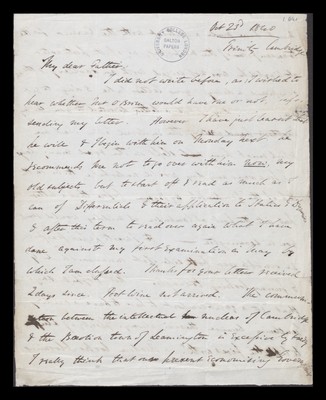 Oct 23rd 1840
Trinity Cambridge
GALTON
PAPERS
My dear Father
I did not write before, as I wished to
hear whether O'Brien would have me or not, before
sending my letter. However I have just heard that
he will & I begin with him on Monday next. he
recommends me not to go over with him now, my
old subjects, but to start off & read as much as I
can of Differentials & their application to Statics &
& after this term to read over again what I have
done against my first examination in May by
which I am classed. Thanks for your letter received
2 days since. Port Wine not arrived. The
between the intellectual nucleus of Cambridge
& the Boeotian town of Leamington is
I really think that our present economising Govern